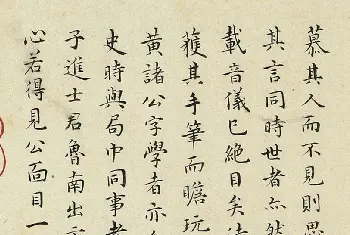 慕其人而不見則思
其言同時世者尒然
載音儀已絶目矣
獲其手筆而瞻玩
黄諸公字學者亦
史時與局中同事者
子進士君魯南出示
心若得見公面目一